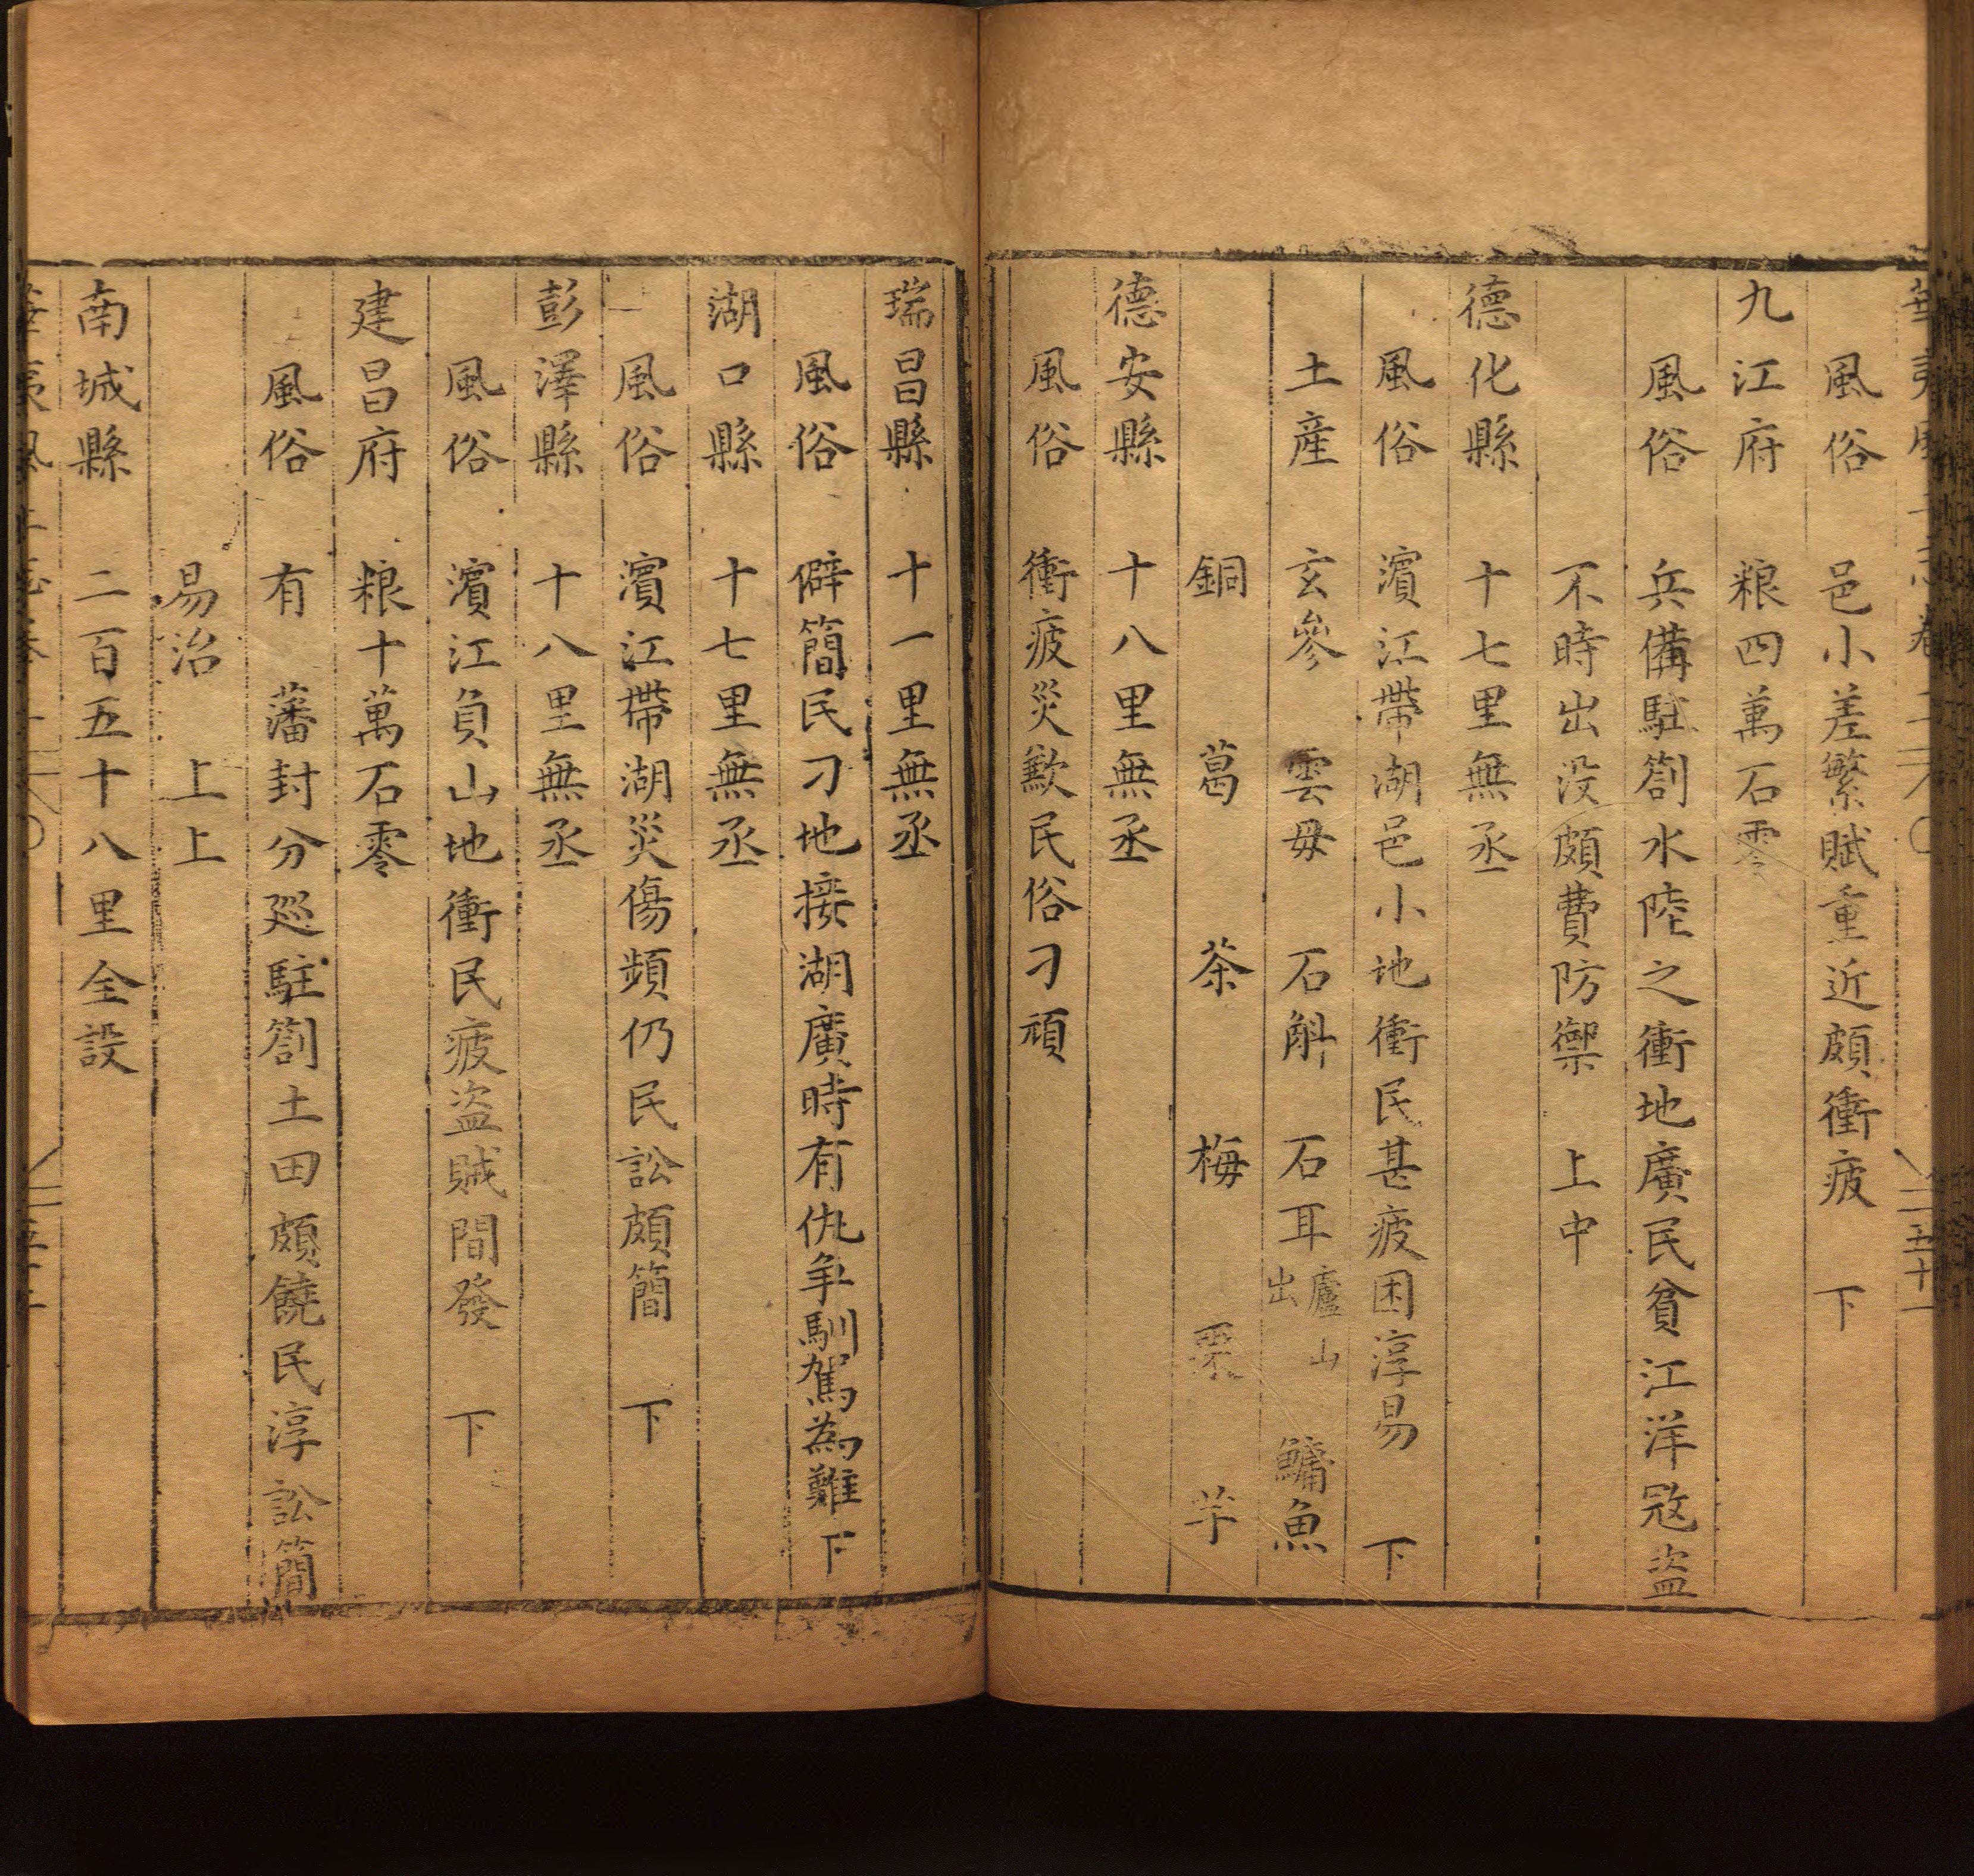 風俗 邑小差繁賦重近頗衝疲 下
九江府 粮四萬石零
風俗 兵備駐劄水陸之衝地廣民貧江洋冦盗
不時出没頗費防禦 上中
德化縣 十七里無丞
風俗 濵江帶湖邑小地衝民甚疲困淳易 下
土産 玄參 雲母 石斛 石耳出廬山 鱅魚
銅 葛 茶 梅 栗 芋
德安縣 十八里無丞
風俗 衝疲災歉民俗刁頑
瑞昌縣 十一里無丞
風俗 僻簡民刁地接湖廣時有仇争馴駕為難 下
湖口縣 十七里無丞
風俗 濵江帶湖災傷頻仍民訟頗簡 下
彭澤縣 十八里無丞
風俗 濵江負山地衝民疲盗賊間發 下
建昌府 粮十萬石零
風俗 有 藩封分廵駐劄土田頗饒民淳訟簡
易治 上上
南城縣 二百五十八里全設